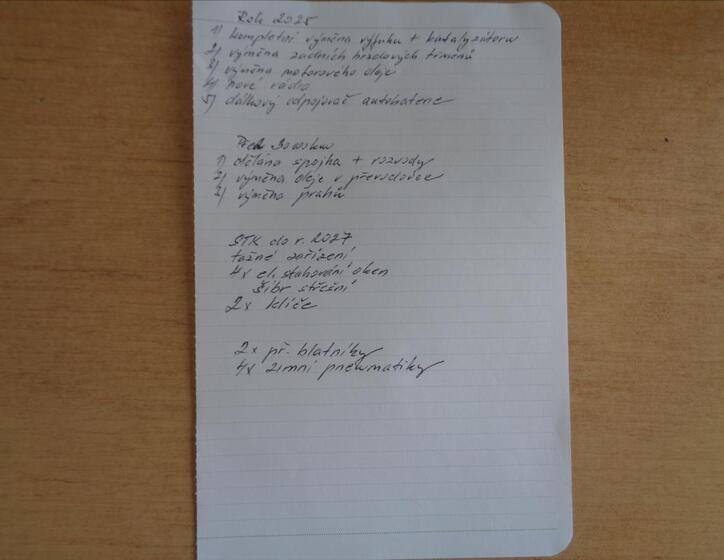 Rok 2025
1) kompletní výměna výfuku + katalyzátoru
2) výměna zadních brzdových třmenů
3) výměna motorového oleje
4) nové rádio
5) dálkový odpojovač autobaterie
Před
1) dělána spojka + rozvody
2) výměna oleje v převodovce
3) výměna prahů
STK do r. 2027
tažné zařízení
4x el. stahování oken
šíbr střešní
2x klíče
2x př. blatníky
4x zimní pneumatiky